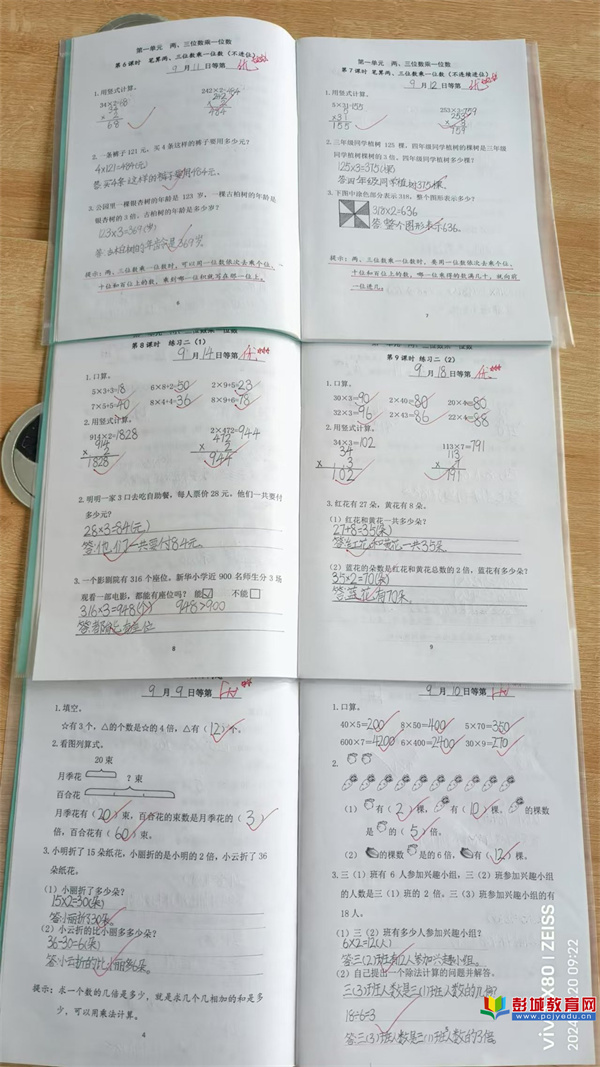 第一单元 两、三位数乘一位数
第6课时 笔算两、三位数乘一位数（不进位）
9月11日等第 优
1.用竖式计算。
34×2=68 242×2=484
34 242
× 2 × 2
68 484
2.一条裤子121元，买4条这样的裤子要用多少元？
4×121=484(元)
答:买4条这样的裤子要用484元.
3.公园里一棵银杏树的年龄是123岁，一棵古柏树的年龄是
银杏树的3倍。古柏树的年龄是多少岁？
123×3=369(岁)
答:古柏树的年龄是369岁
提示：两、三位数乘一位数时，可以用一位数依次去乘个位、
十位和百位上的数，乘到哪一位积就写在那一位上。
6
第一单元 两、三位数乘一位数
第7课时 笔算两、三位数乘一位数（不连续进位）
9月12日等第 优
1.用竖式计算。
5×31=155 253×3=759
× 31 253
155 × 3
759
2.三年级同学植树125棵，四年级同学植树的棵树是三年级
同学植树棵树的3倍。四年级同学植树多少棵？
125×3=375(棵)
答:四年级同学植树375棵.
3.下图中涂色部分表示318，整个图形表示多少？
318×2=636
答:整个图形表示636.
提示：两、三位数乘一位数时，要用一位数依次去乘个位、
十位和百位上的数，哪一位乘得的数满几十，就向前
一位进几。
7
第一单元 两、三位数乘一位数
第8课时 练习二（1）
9月14日等第 优
1.口算。
5×3+3=18 6×8+2=50 2×9+5=23
7×5+5=40 8×4+4=36 8×9+6=78
2.用竖式计算。
914×2=1828 2×472=944
914 472
× 2 × 2
1828 944
2.明明一家3口去吃自助餐，每人票价28元。他们一共要付
多少元？
28×3=84(元)
答:他们一共要付84元.
3.一个影剧院有316个座位。新华小学近900名师生分3场
观看一部电影，都能有座位吗？ 能☑ 不能□
316×3=948(个) 948>900
答:都能有座位
8
第一单元 两、三位数乘一位数
第9课时 练习二（2）
9月18日等第 优
1.口算。
30×3=90 2×40=80 20×4=80
32×3=96 2×43=86 22×4=88
2.用竖式计算。
34×3=102 113×7=791
34 113
× 3 × 7
102 791
3.红花有27朵，黄花有8朵。
（1）红花和黄花一共多少朵？
27+8=35(朵)
答:红花和黄花一共35朵.
（2）蓝花的朵数是红花和黄花总数的2倍，蓝花有多少朵？
35×2=70(朵)
答:蓝花有70朵.
9
9月9日等第 优
1.填空。
☆有3个，△的个数是☆的4倍，△有（12）个。
2.看图列算式。
20束
月季花
？束
百合花
月季花有（20）束，百合花的束数是月季花的（3）
倍，百合花有（60）束。
3.小明折了15朵纸花，小丽折的是小明的2倍，小云折了36
朵纸花。
（1）小丽折了多少朵？
15×2=30(朵)
答:小丽折了30朵.
（2）小云折的比小丽多多少朵？
36-30=6(朵)
答:小云折的比小丽多6朵.
提示：求一个数的几倍是多少，就是求几个几相加的和是多
少，可以用乘法计算。
4
9月10日等第 优
1.口算。
40×5=200 8×50=400 5×70=350
600×7=4200 6×400=2400 30×9=270
2.
（1） 有（2）棵， 有（10）棵， 的棵数
是 的（5）倍。
（2） 的棵数 是的6倍， 有（12）棵。
3.三（1）班有6人参加兴趣小组，三（2）班参加兴趣小组
的人数是三（1）班的2倍。三（3）班参加兴趣小组的有
18人。
（1）三（2）班有多少人参加兴趣小组？
6×2=12(人)
答:三(2)班有12人参加兴趣小组.
（2）自己提出一个除法计算的问题并解答。
三(3)班人数是三(1)班人数的几倍?
18÷6=3
答:三(3)班人数是三(1)班人数的3倍
彭城教育网
www.pcjyedu.cn